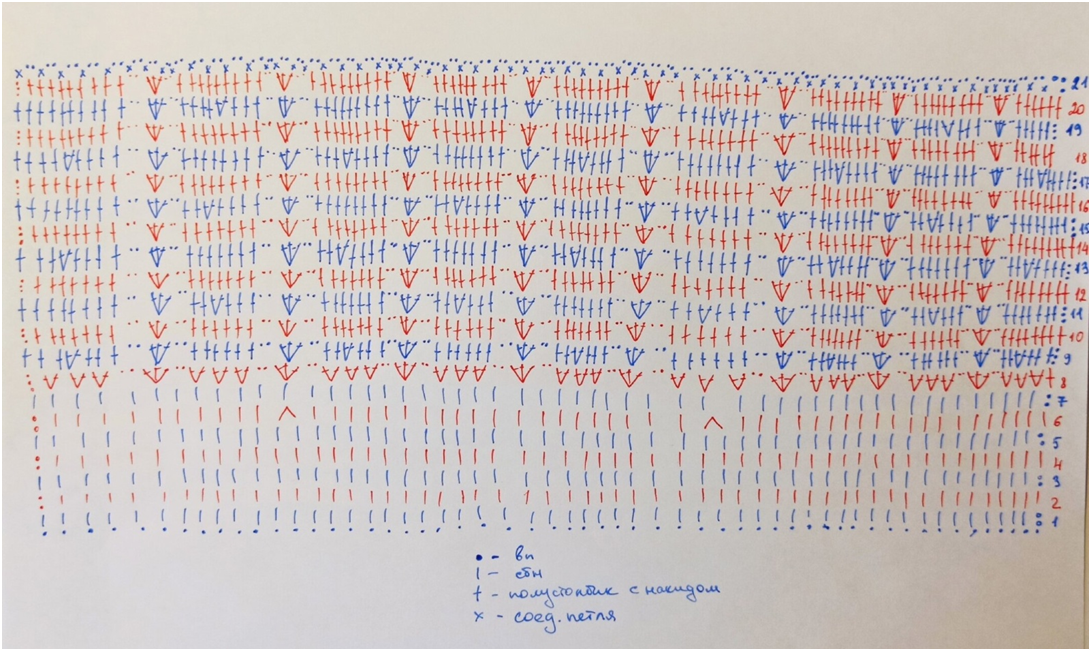 21
20
19
18
17
16
15
14
13
12
11
10
9
8
7
6
5
4
3
2
1
• - вп
| - сбн
† - полустолбик с накидом
x - соед. петля